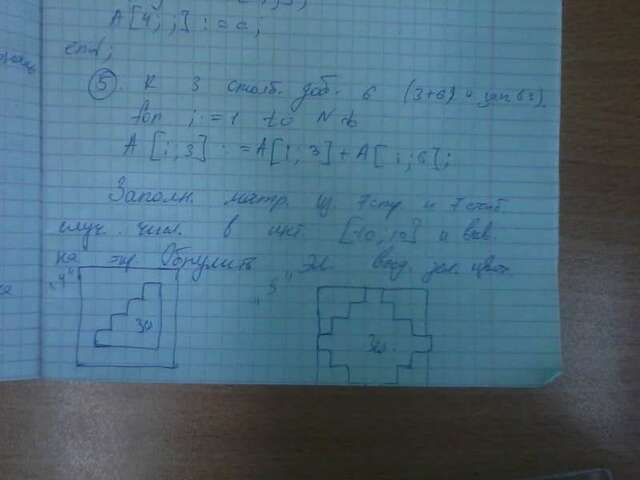 A[4; j] := a;
end;
⑤. К 3 столб. доб. 6 (3+6) и зап в 3).
for i := 1 to N do
A [i, 3] := A[i; 3] + A[i; 6];
Заполн. матр. из 7 стр и 7 столб.
случ. числ. в инт. [-10, 10] и выв.
на экр. Обнулить эл. выд. зел. цвет.
"4" "5"
Зел Зел.